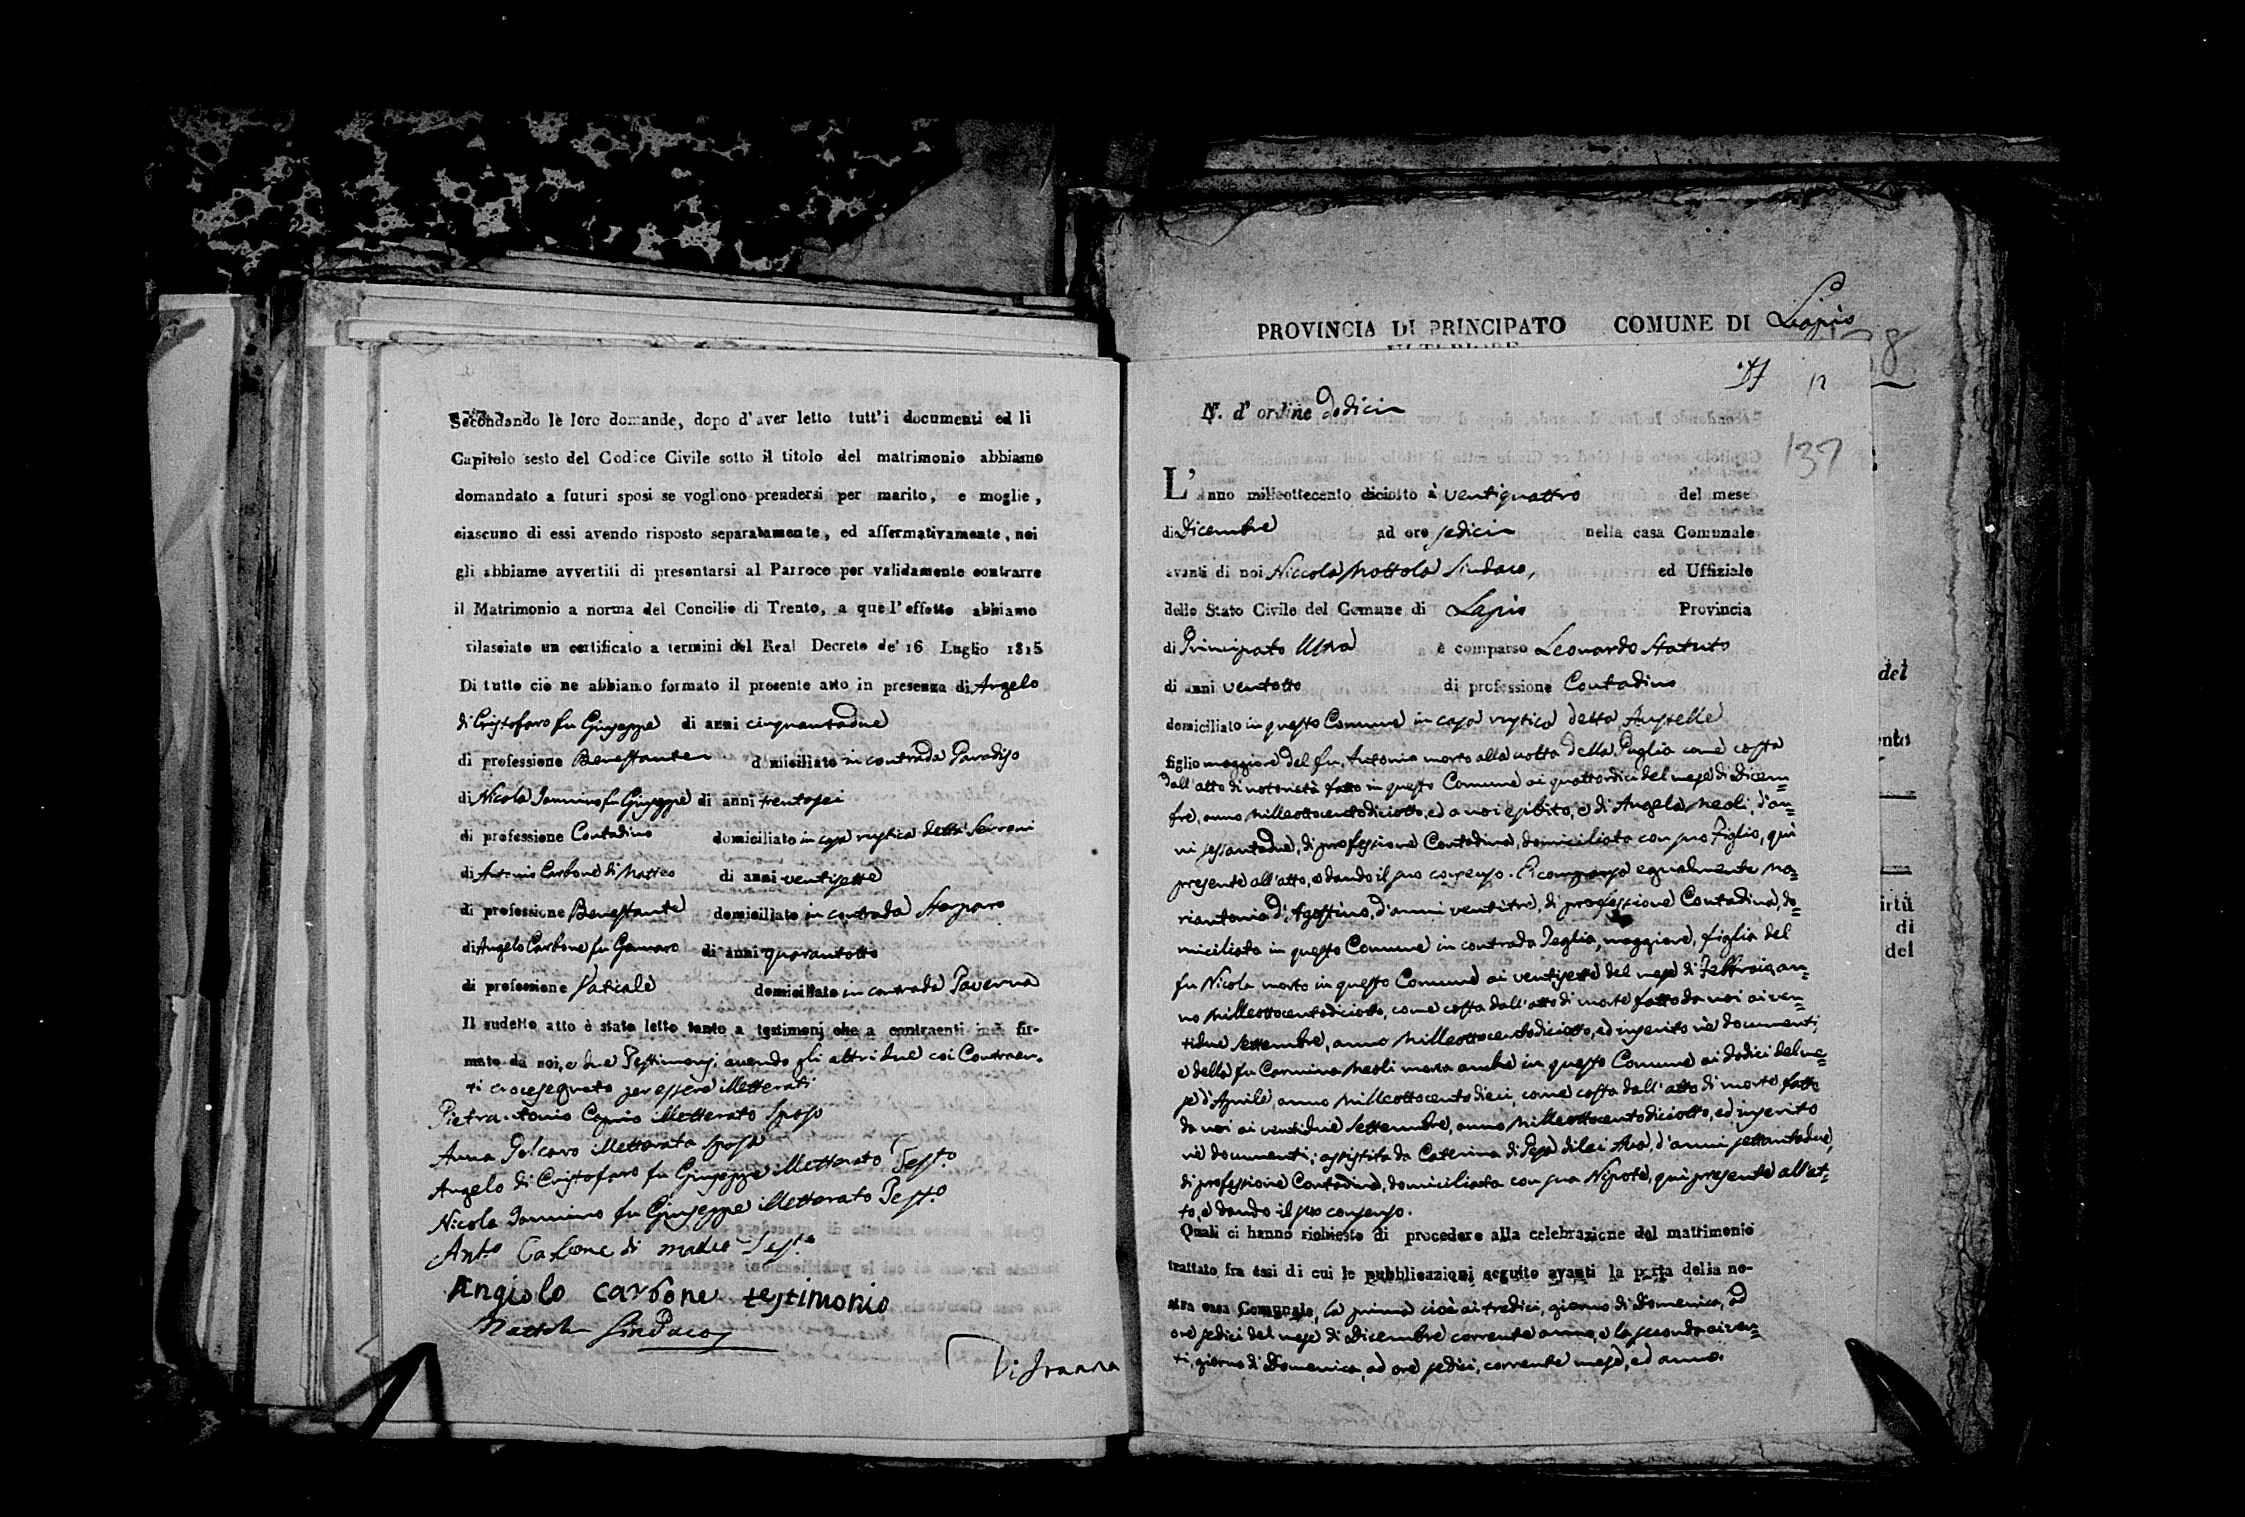 Secondando le loro domande, dopo d'aver letto tutt'i documenti ed li
Capitolo sesto del Codice Civile sotto il titolo del matrimonio abbiamo
domandato a futuri sposi se vogliono prendersi per marito, e moglie,
ciascuno di essi avendo risposto separatamente, ed affermativamente, noi
gli abbiamo avvertiti di presentarsi al Parroco per validamente contrarre
il Matrimonio a norma del Concilio di Trento, a que l'effetto abbiamo
rilasciato un certificato a termini del Real Decreto de' 16 Luglio 1815
Di tutto ciò ne abbiamo formato il presente atto in presenza di Angelo
di Cristofaro fu Giuseppe di anni cinquantadue
di professione Benestante domiciliato in contrada Paradiso
di Nicola Iannino fu Giuseppe di anni trentasei
di professione Contadino domiciliato in casa rustica detta Serroni
di Antonio Carbone di Matteo di anni ventisette
di professione Benestante domiciliato in contrada
di Angelo Carbone fu Gennaro di anni quarantotto
di professione Vaticale domiciliato in contrada Taverna
Il sudetto atto è stato letto tanto a testimonj che a contraenti indi fir-
mato da noi, e due Testimonj, avendo gli altri due coi Contraen-
ti crocesegnato per essere illetterati
Pietrantonio Caprio illetterato Sposo
Anna illetterata Sposa
Angelo di Cristofaro fu Giuseppe illetterato Testo
Nicola Iannino fu Giuseppe illetterato Testo
Anto Carbone di Matteo Testo
Angiolo carbone testimonio
Mottola Sindaco
PROVINCIA DI PRINCIPATO COMUNE DI Lapio
ULTERIORE
12
N. d' ordine Dodici
137
L'Anno milleottecento diciotto à ventiquattro del mese
di Dicembre ad ore sedici nella casa Comunale
avanti di noi Niccola Mottola Sindaco, ed Uffiziale
dello Stato Civile del Comune di Lapio Provincia
di Principato Ultra è comparso Leonardo Statuto
di anni ventotto di professione Contadino
domiciliato in questo Comune in casa rustica detta
figlio maggiore del fu Antonio morto alla volta della Puglia come costa
dall'atto di notorietà fatto in questo Comune ai quattordici del mese di Dicem-
bre, anno milleottocentodiciotto, ed a noi esibito, e di Angela Meoli, d'an-
ni sessantadue, di professione Contadina, domiciliata con suo Figlio, quì
presente all'atto, e dando il suo consenso. È comparsa egualmente Ma-
riantonia d'Agostino, d'anni ventitre, di professione Contadina, do-
miciliata in questo Comune in contrada Teglia, maggiore, figlia del
fu Nicola morto in questo Comune ai ventisette del mese di Febbraio, an-
no milleottocentodiciotto, come costa dall'atto di morte fatto da noi ai ven-
tidue Settembre, anno milleottocentodiciotto, ed inserito nè documenti,
e della fu Carmina Meoli morta anche in questo Comune ai dodici del me-
se d'Aprile, anno milleottocentodieci, come costa dall'atto di morte fatto
da noi ai ventidue Settembre, anno milleottocentodiciotto, ed inserito
nè documenti; assistita da Caterina di Pesa di lei Ava, d'anni settantadue,
di professione Contadina, domiciliata con sua Nipote, quì presente all'at-
to, e dando il suo consenso.
Quali ci hanno richiesto di procedere alla celebrazione del matrimonio
trattato fra essi di cui le pubblicazioni seguito avanti la porta della no-
stra casa Comunale, la prima cioè ai tredici, giorno di Domenica, ad
ore sedici del mese di Dicembre corrente anno, e la seconda ai ven-
ti, giorno di Domenica, ad ore sedici, corrente mese, ed anno.
del
di
del